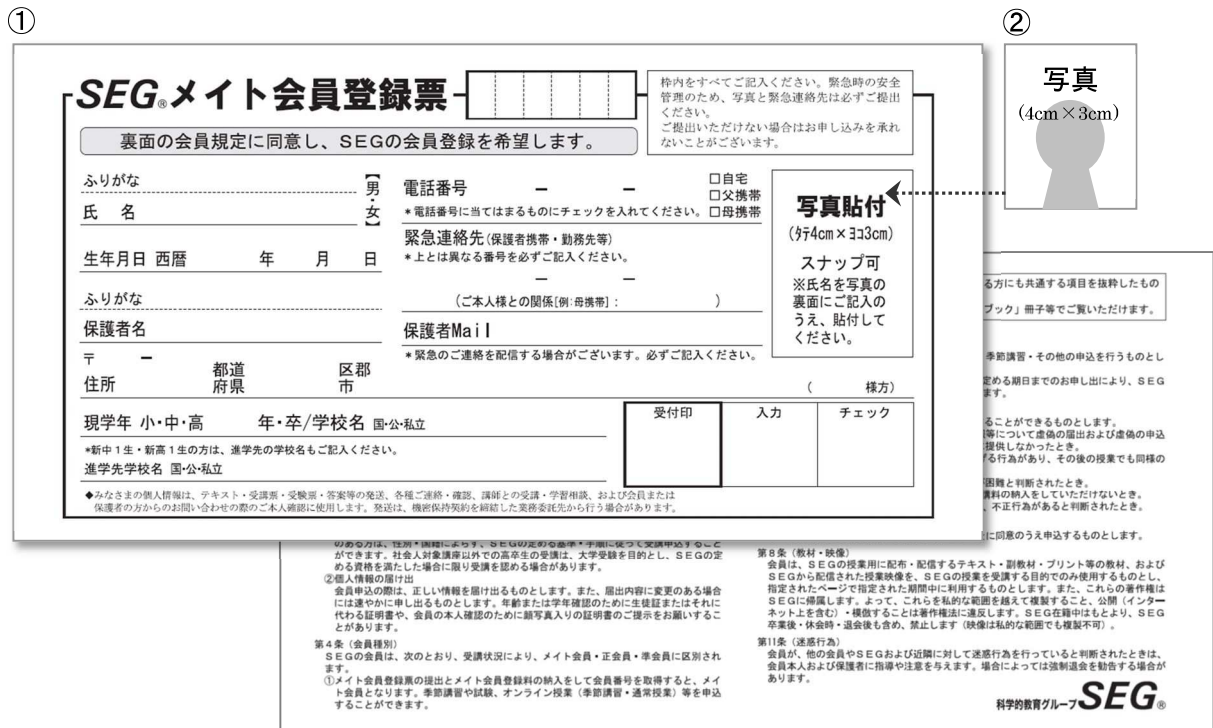 ①
SEG®メイト会員登録票
枠内をすべてご記入ください。緊急時の安全
管理のため、写真と緊急連絡先は必ずご提出
ください。
ご提出いただけない場合はお申し込みを承れ
ないことがございます。
裏面の会員規定に同意し、SEGの会員登録を希望します。
ふりがな
氏 名
【男・女】
生年月日 西暦 年 月 日
ふりがな
保護者名
〒 ー
住所 都道府県 区郡市 ( 様方)
電話番号 ー ー
□自宅
□父携帯
□母携帯
*電話番号に当てはまるものにチェックを入れてください。
緊急連絡先(保護者携帯・勤務先等)
*上とは異なる番号を必ずご記入ください。
ー ー
(ご本人様との関係[例:母携帯]: )
保護者Mail
*緊急のご連絡を配信する場合がございます。必ずご記入ください。
写真貼付
(タテ4cm×ヨコ3cm)
スナップ可
※氏名を写真の
裏面にご記入の
うえ、貼付して
ください。
現学年 小・中・高 年・卒/学校名 国・公・私立
*新中1生・新高1生の方は、進学先の学校名もご記入ください。
進学先学校名 国・公・私立
受付印 入力 チェック
◆みなさまの個人情報は、テキスト・受講票・受験票・答案等の発送、各種ご連絡・確認、講師との受講・学習相談、および会員または
保護者の方からのお問い合わせの際のご本人確認に使用します。発送は、機密保持契約を締結した業務委託先から行う場合があります。
②
写真
(4cm×3cm)
る方にも共通する項目を抜粋したもの
ブック」冊子等でご覧いただけます。
季節講習・その他の申込を行うものとし
定める期日までのお申し出により、SEG
ます。
ることができるものとします。
等について虚偽の届出および虚偽の申込
提供しなかったとき。
る行為があり、その後の授業でも同様の
困難と判断されたとき。
講料の納入をしていただけないとき。
、不正行為があると判断されたとき。
に同意のうえ申込するものとします。
のある方は、性別・国籍によらず、SEGの定める基準・手順に従って受講申込すること
ができます。社会人対象講座以外での高卒生の受講は、大学受験を目的とし、SEGの定
める資格を満たした場合に限り受講を認める場合があります。
②個人情報の届け出
会員申込の際は、正しい情報を届け出るものとします。また、届出内容に変更のある場合
には速やかに申し出るものとします。年齢または学年確認のために生徒証またはそれに
代わる証明書や、会員の本人確認のために顔写真入りの証明書のご提示をお願いするこ
とがあります。
第4条(会員種別)
SEGの会員は、次のとおり、受講状況により、メイト会員・正会員・準会員に区別され
ます。
①メイト会員登録票の提出とメイト会員登録料の納入をして会員番号を取得すると、メイ
ト会員となります。季節講習や試験、オンライン授業(季節講習・通常授業)等を申込
することができます。
第8条(教材・映像)
会員は、SEGの授業用に配布・配信するテキスト・副教材・プリント等の教材、および
SEGから配信された授業映像を、SEGの授業を受講する目的でのみ使用するものとし、
指定されたページで指定された期間中に利用するものとします。また、これらの著作権は
SEGに帰属します。よって、これらを私的な範囲を越えて複製すること、公開(インター
ネット上を含む)・模倣することは著作権法に違反します。SEG在籍中はもとより、SEG
卒業後・休会時・退会後も含め、禁止します(映像は私的な範囲でも複製不可)。
第11条(迷惑行為)
会員が、他の会員やSEGおよび近隣に対して迷惑行為を行っていると判断されたときは、
会員本人および保護者に指導や注意を与えます。場合によっては強制退会を勧告する場合が
あります。
科学的教育グループSEG®